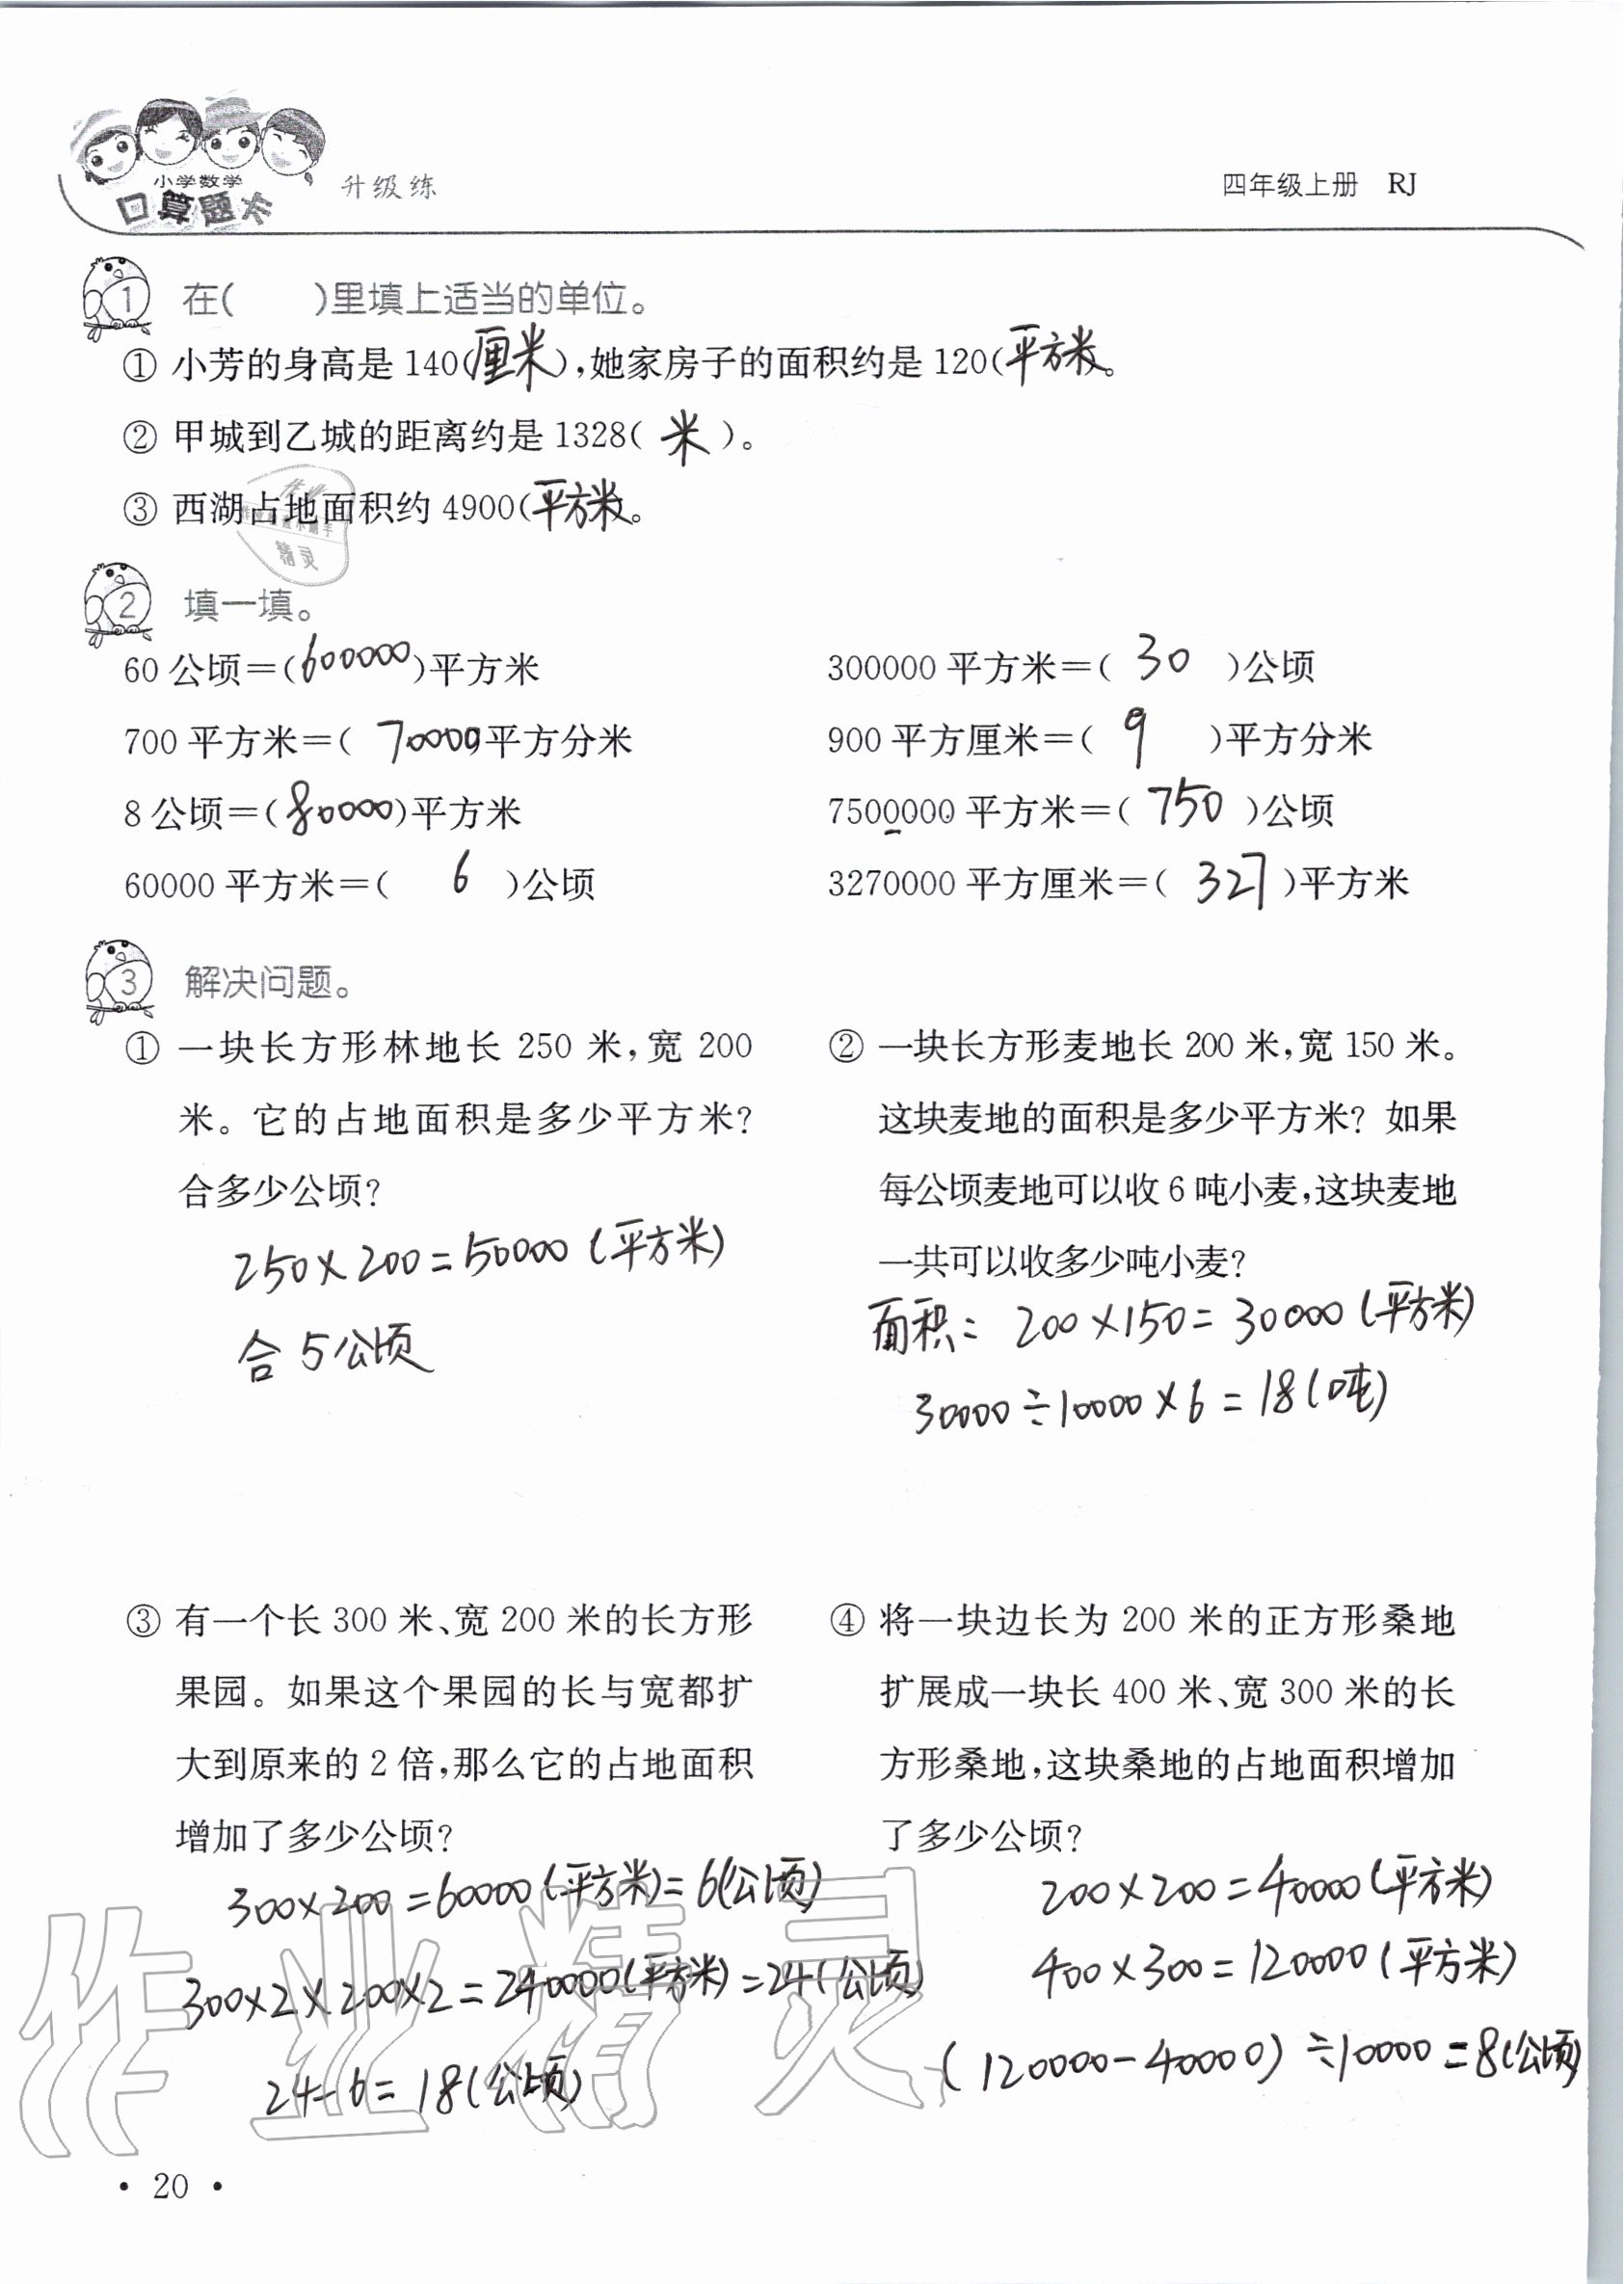 小学数学
口算题卡
升级练
四年级上册 RJ
1 在( )里填上适当的单位。
① 小芳的身高是 140(厘米),她家房子的面积约是 120(平方米。
② 甲城到乙城的距离约是 1328( 米 )。
③ 西湖占地面积约 4900(平方米)。
作业
精灵
2 填一填。
60 公顷=(600000)平方米
300000 平方米=( 30 )公顷
700 平方米=( 70000平方分米
900 平方厘米=( 9 )平方分米
8 公顷=(80000)平方米
7500000 平方米=( 750 )公顷
60000 平方米=( 6 )公顷
3270000 平方厘米=( 327 )平方米
3 解决问题。
① 一块长方形林地长 250 米,宽 200
米。它的占地面积是多少平方米?
合多少公顷?
250×200=50000(平方米)
合5公顷
② 一块长方形麦地长 200 米,宽 150 米。
这块麦地的面积是多少平方米? 如果
每公顷麦地可以收 6 吨小麦,这块麦地
一共可以收多少吨小麦?
面积: 200×150=30000(平方米)
30000÷10000×6=18(吨)
③ 有一个长 300 米、宽 200 米的长方形
果园。如果这个果园的长与宽都扩
大到原来的 2 倍,那么它的占地面积
增加了多少公顷?
300×200=60000(平方米)=6(公顷)
300×2×200×2=240000(平方米)=24(公顷)
24-6=18(公顷)
④ 将一块边长为 200 米的正方形桑地
扩展成一块长 400 米、宽 300 米的长
方形桑地,这块桑地的占地面积增加
了多少公顷?
200×200=40000(平方米)
400×300=120000(平方米)
(120000-40000)÷10000=8(公顷)
作业精灵
· 20 ·